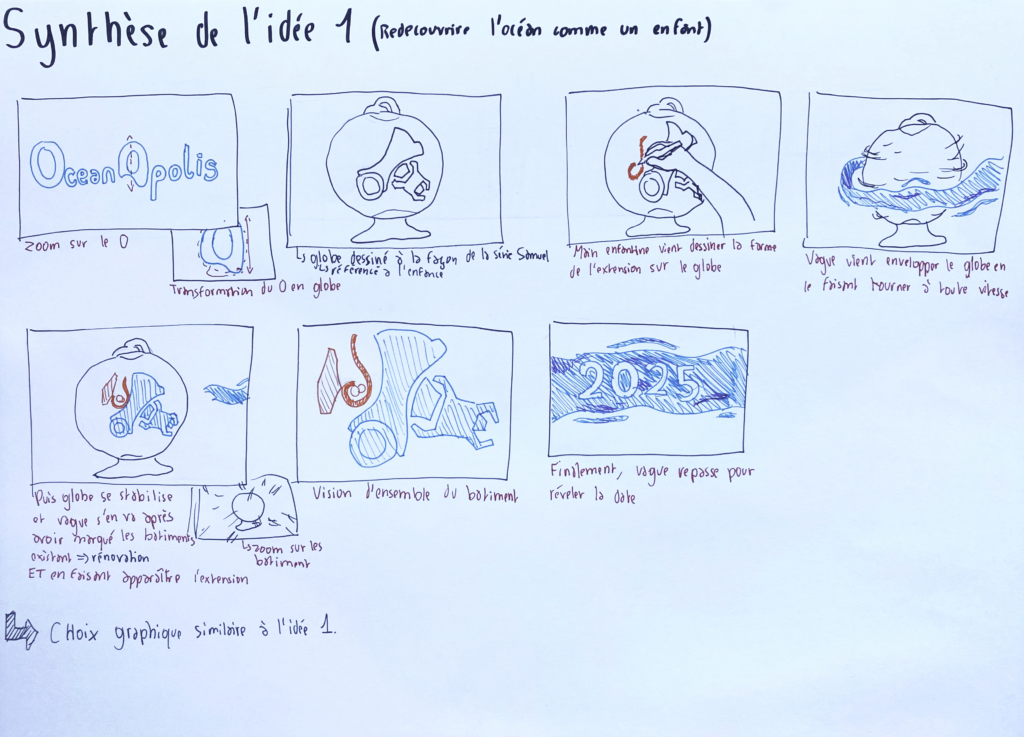 Synthèse de l'idée 1 (Redecouvrire l'océan comme un enfant)
OceanOpolis
zoom sur le O
Transformation du O en globe
↳ globe dessiné à la façon de la série Samuel
↳ référence à l'enfance
Main enfantine vient dessiner la forme
de l'extension sur le globe
Vague vient envelopper le globe en
le faisant tourner à toute vitesse
Puis globe se stabilise
et vague s'en va après
avoir marqué les bâtiments
existant => rénovation
ET en faisant apparaître l'extension
↳ zoom sur les
bâtiment
Vision d'ensemble du bâtiment
2025
Finalement, vague repasse pour
réveler la date
CHoix graphique similaire à l'idée 1.